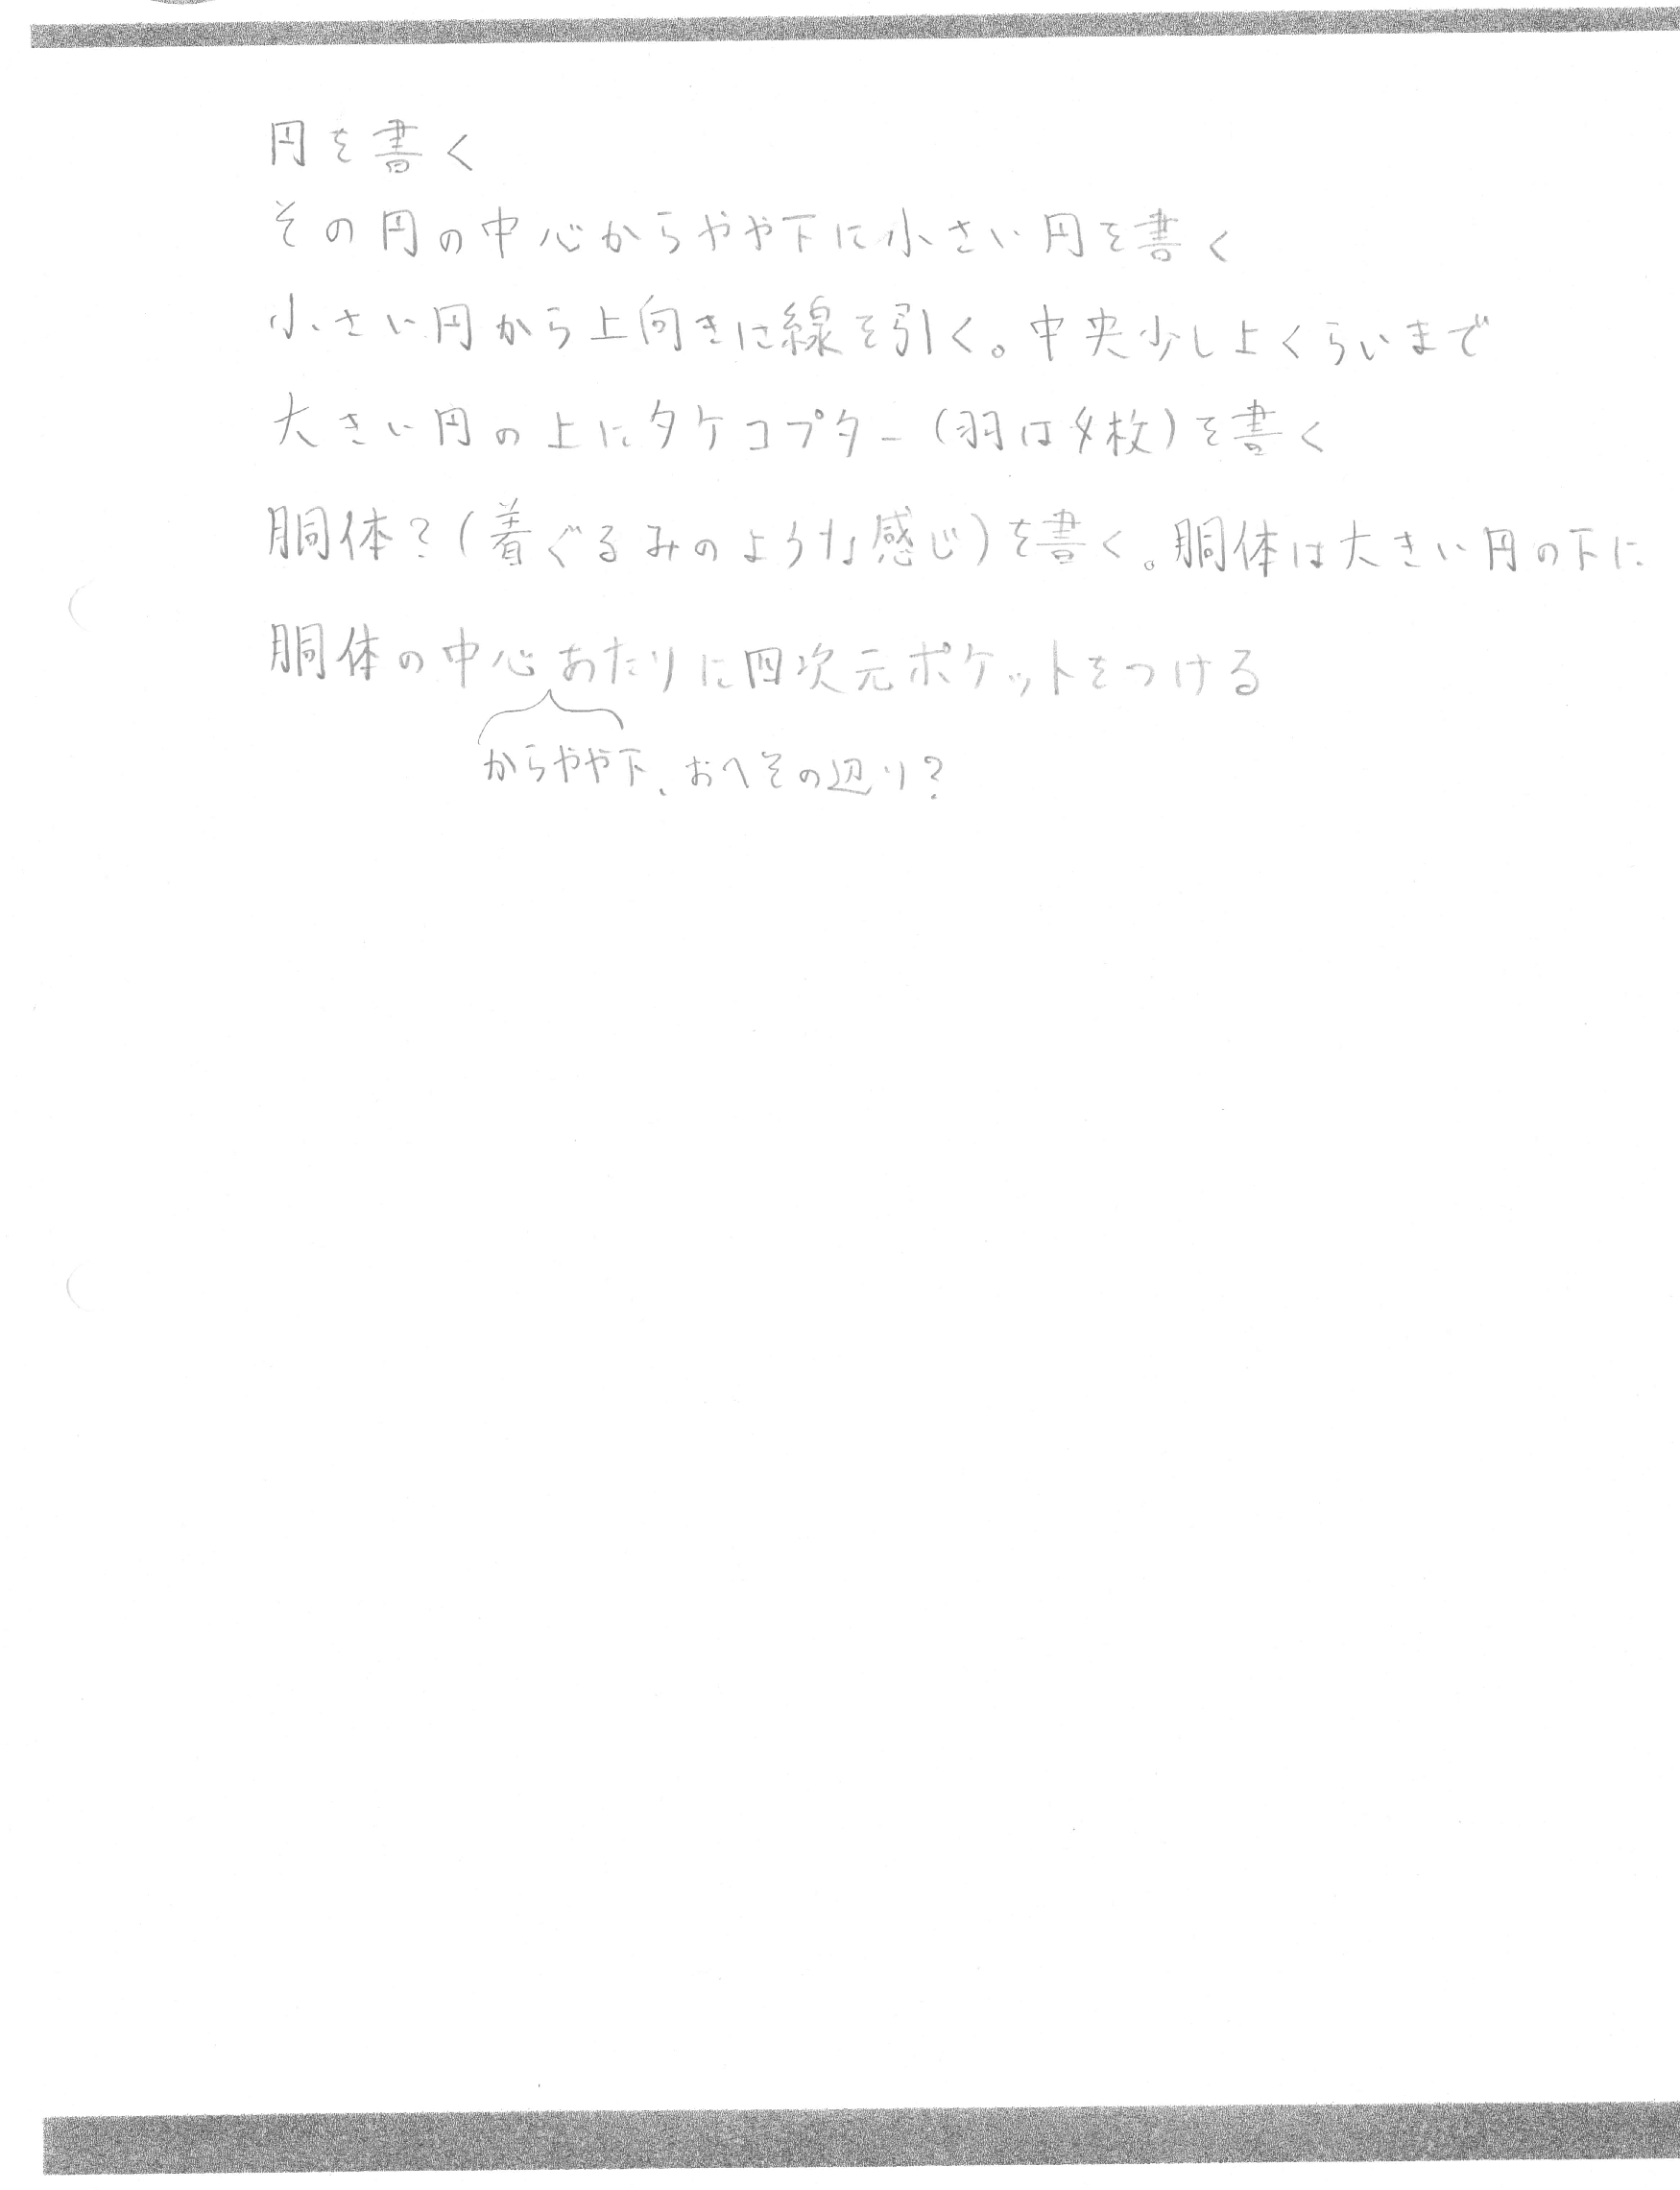 円を書く
その円の中心からやや下に小さい円を書く
小さい円から上向きに線を引く。中央少し上くらいまで
大きい円の上にタケコプター(羽は4枚)を書く
胴体?(着ぐるみのような感じ)を書く。胴体は大きい円の下に
胴体の中心あたりに四次元ポケットをつける
からやや下、おへその辺り?